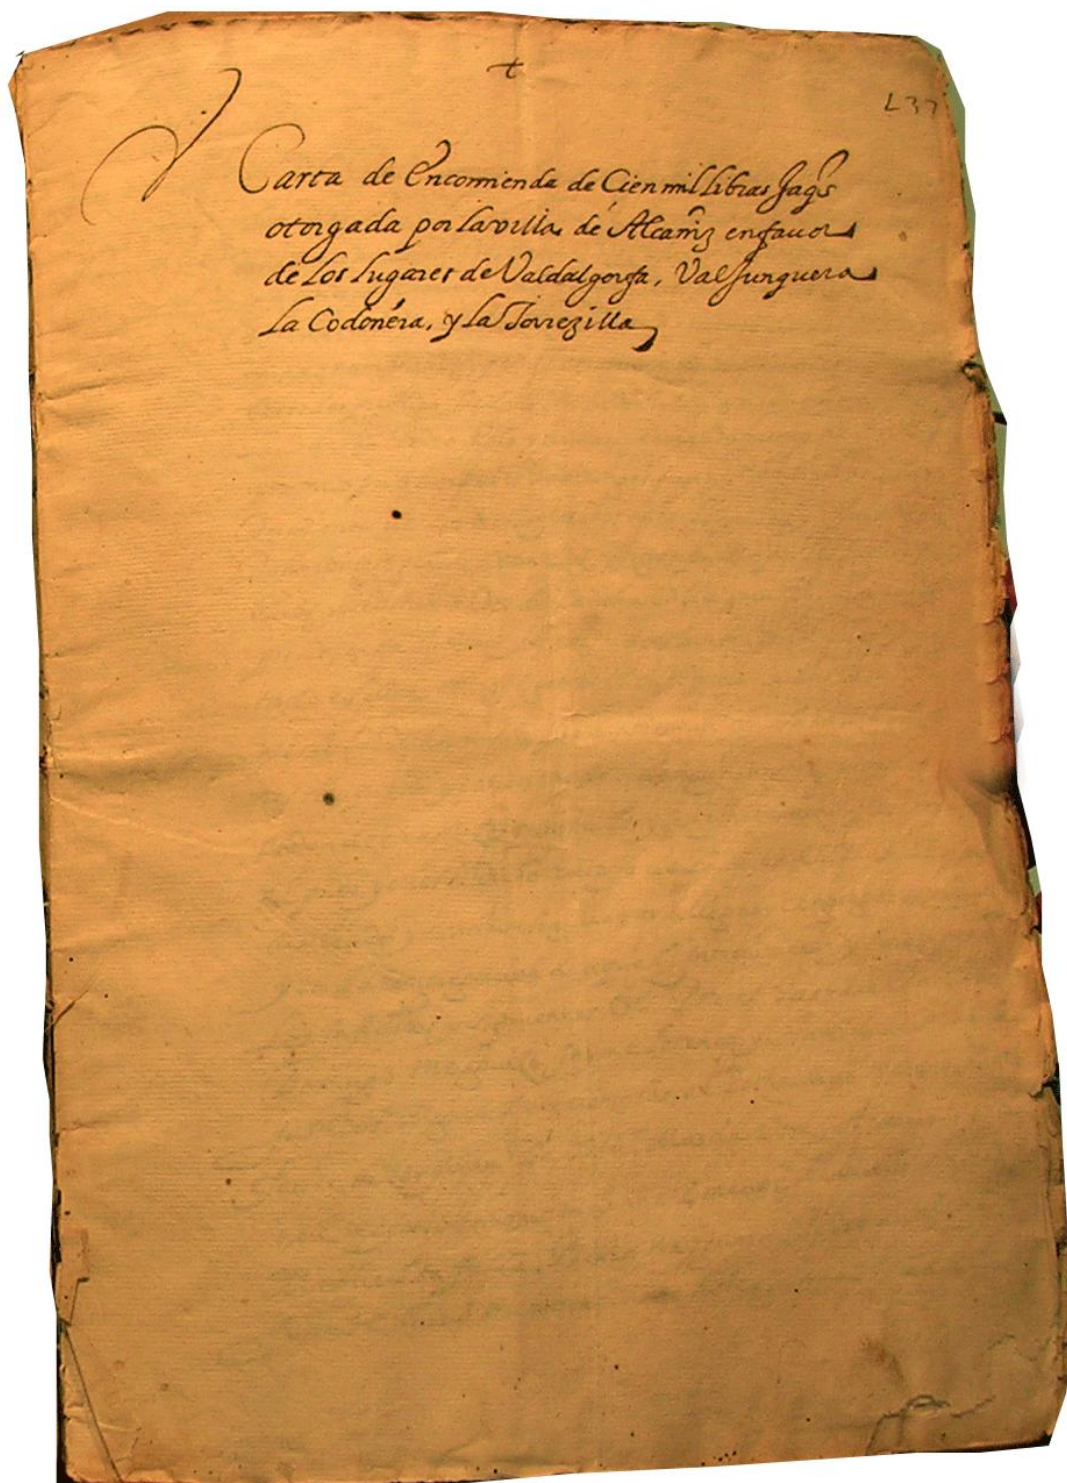 +
L37
Carta de Encomienda de Cien mil libras Jaqs
otorgada por la villa de Alcañiz en favor
de los lugares de Valdalgorfa, Valjunquera
la Codoñera, y la Torrezilla